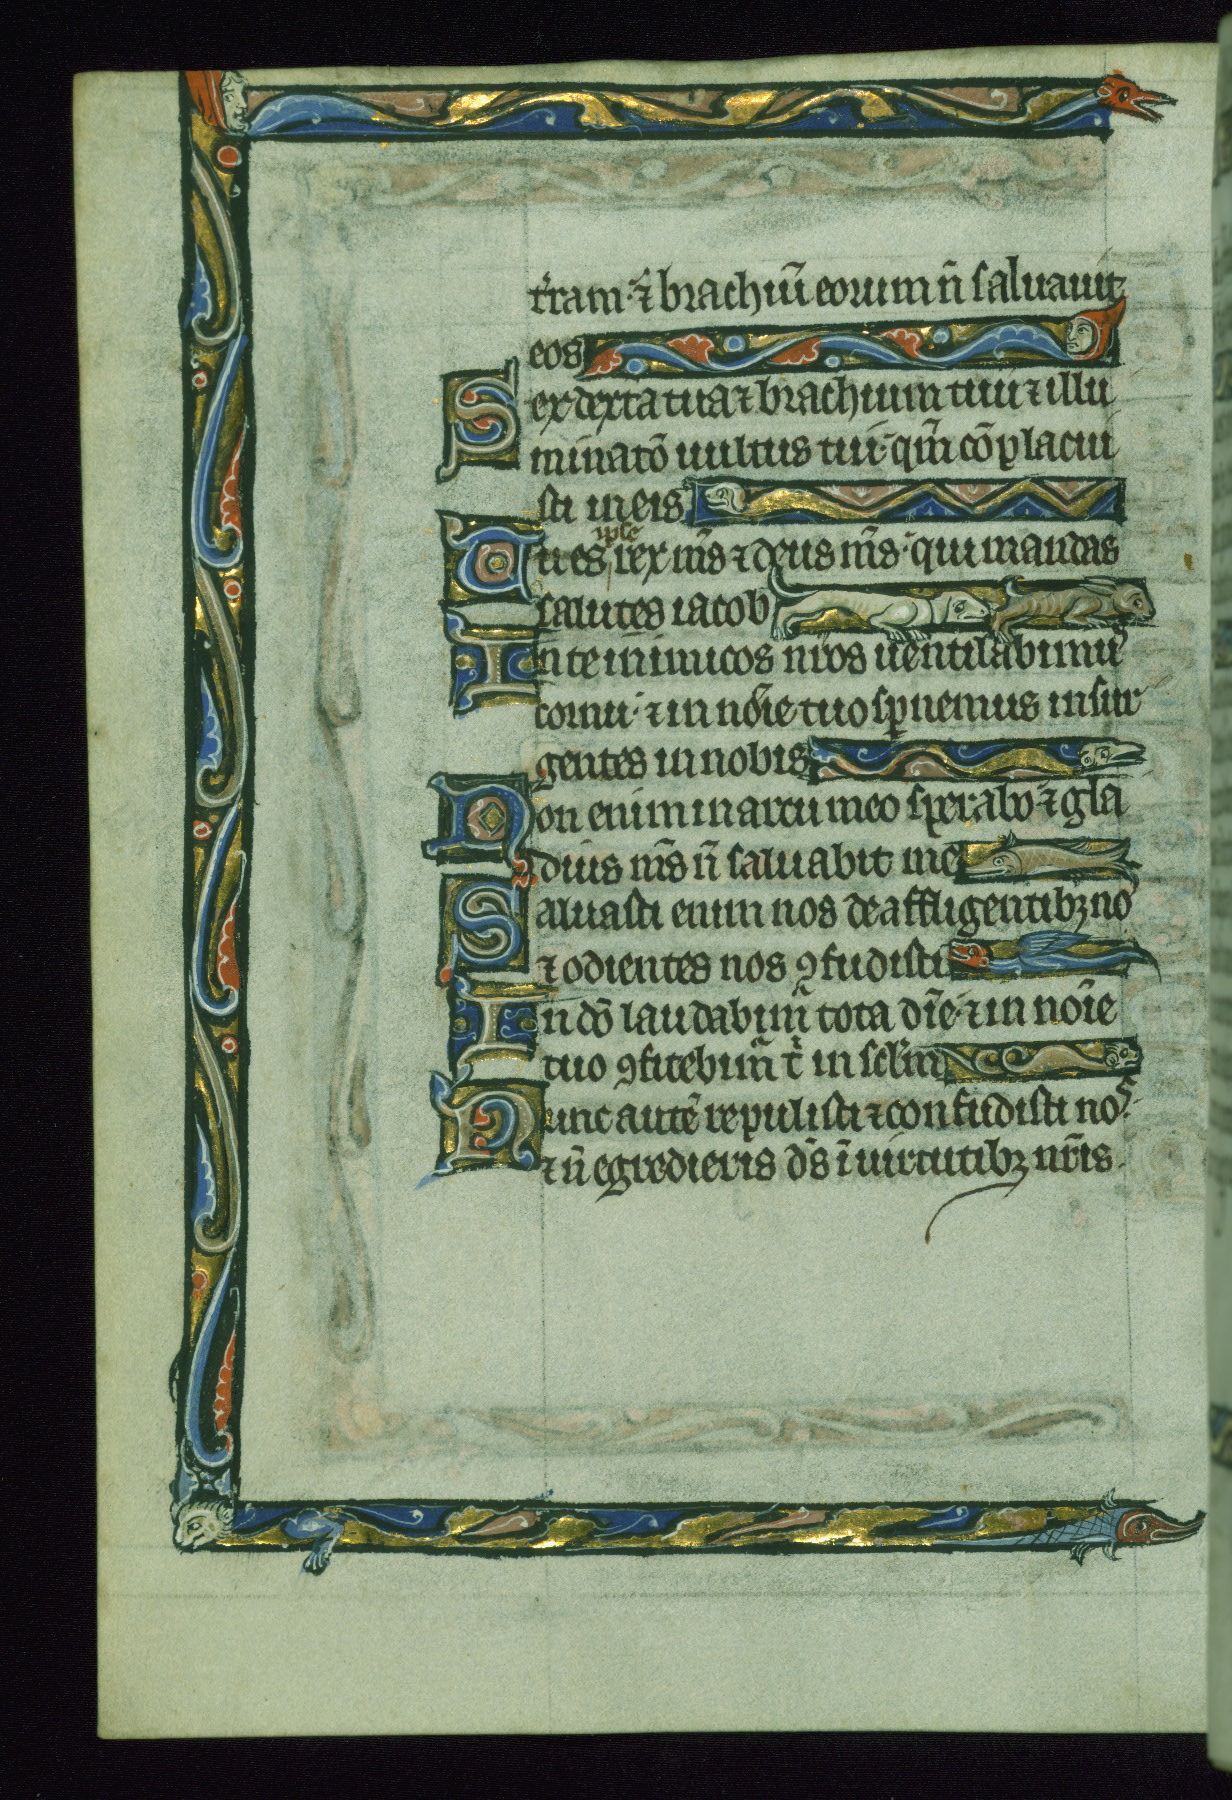 t̉ram· ⁊ brachiū eorum n̄ saluauit
eos
Sex dext̉a tua ⁊ brachium tuū ⁊ illu
minatō uultus tui· qm̄ cōplacui
sti in eis
Tu es ipse rex m̄s ⁊ deus m̄s· qui mandas
salutes iacob
In te inimicos nr̄os uentilabimuꝰ
cornu· ⁊ in noīe tuo spernemus insur
gentes in nobis
Non enim in arcu meo sperabo· ⁊ gla
dius m̄s n̄ saluabit me
Saluasti enim nos de affligentibꝫ noˢ
⁊ odientes nos ꝯfudisti
In dō laudabimꝰ tota dīe· ⁊ in noīe
tuo ꝯfitebimꝰ t̄ in sclm̄
Nunc autē repulisti ⁊ confudisti noˢ·
⁊ n̄ egredieris ds̄ ī uirtutibꝫ nr̄is·